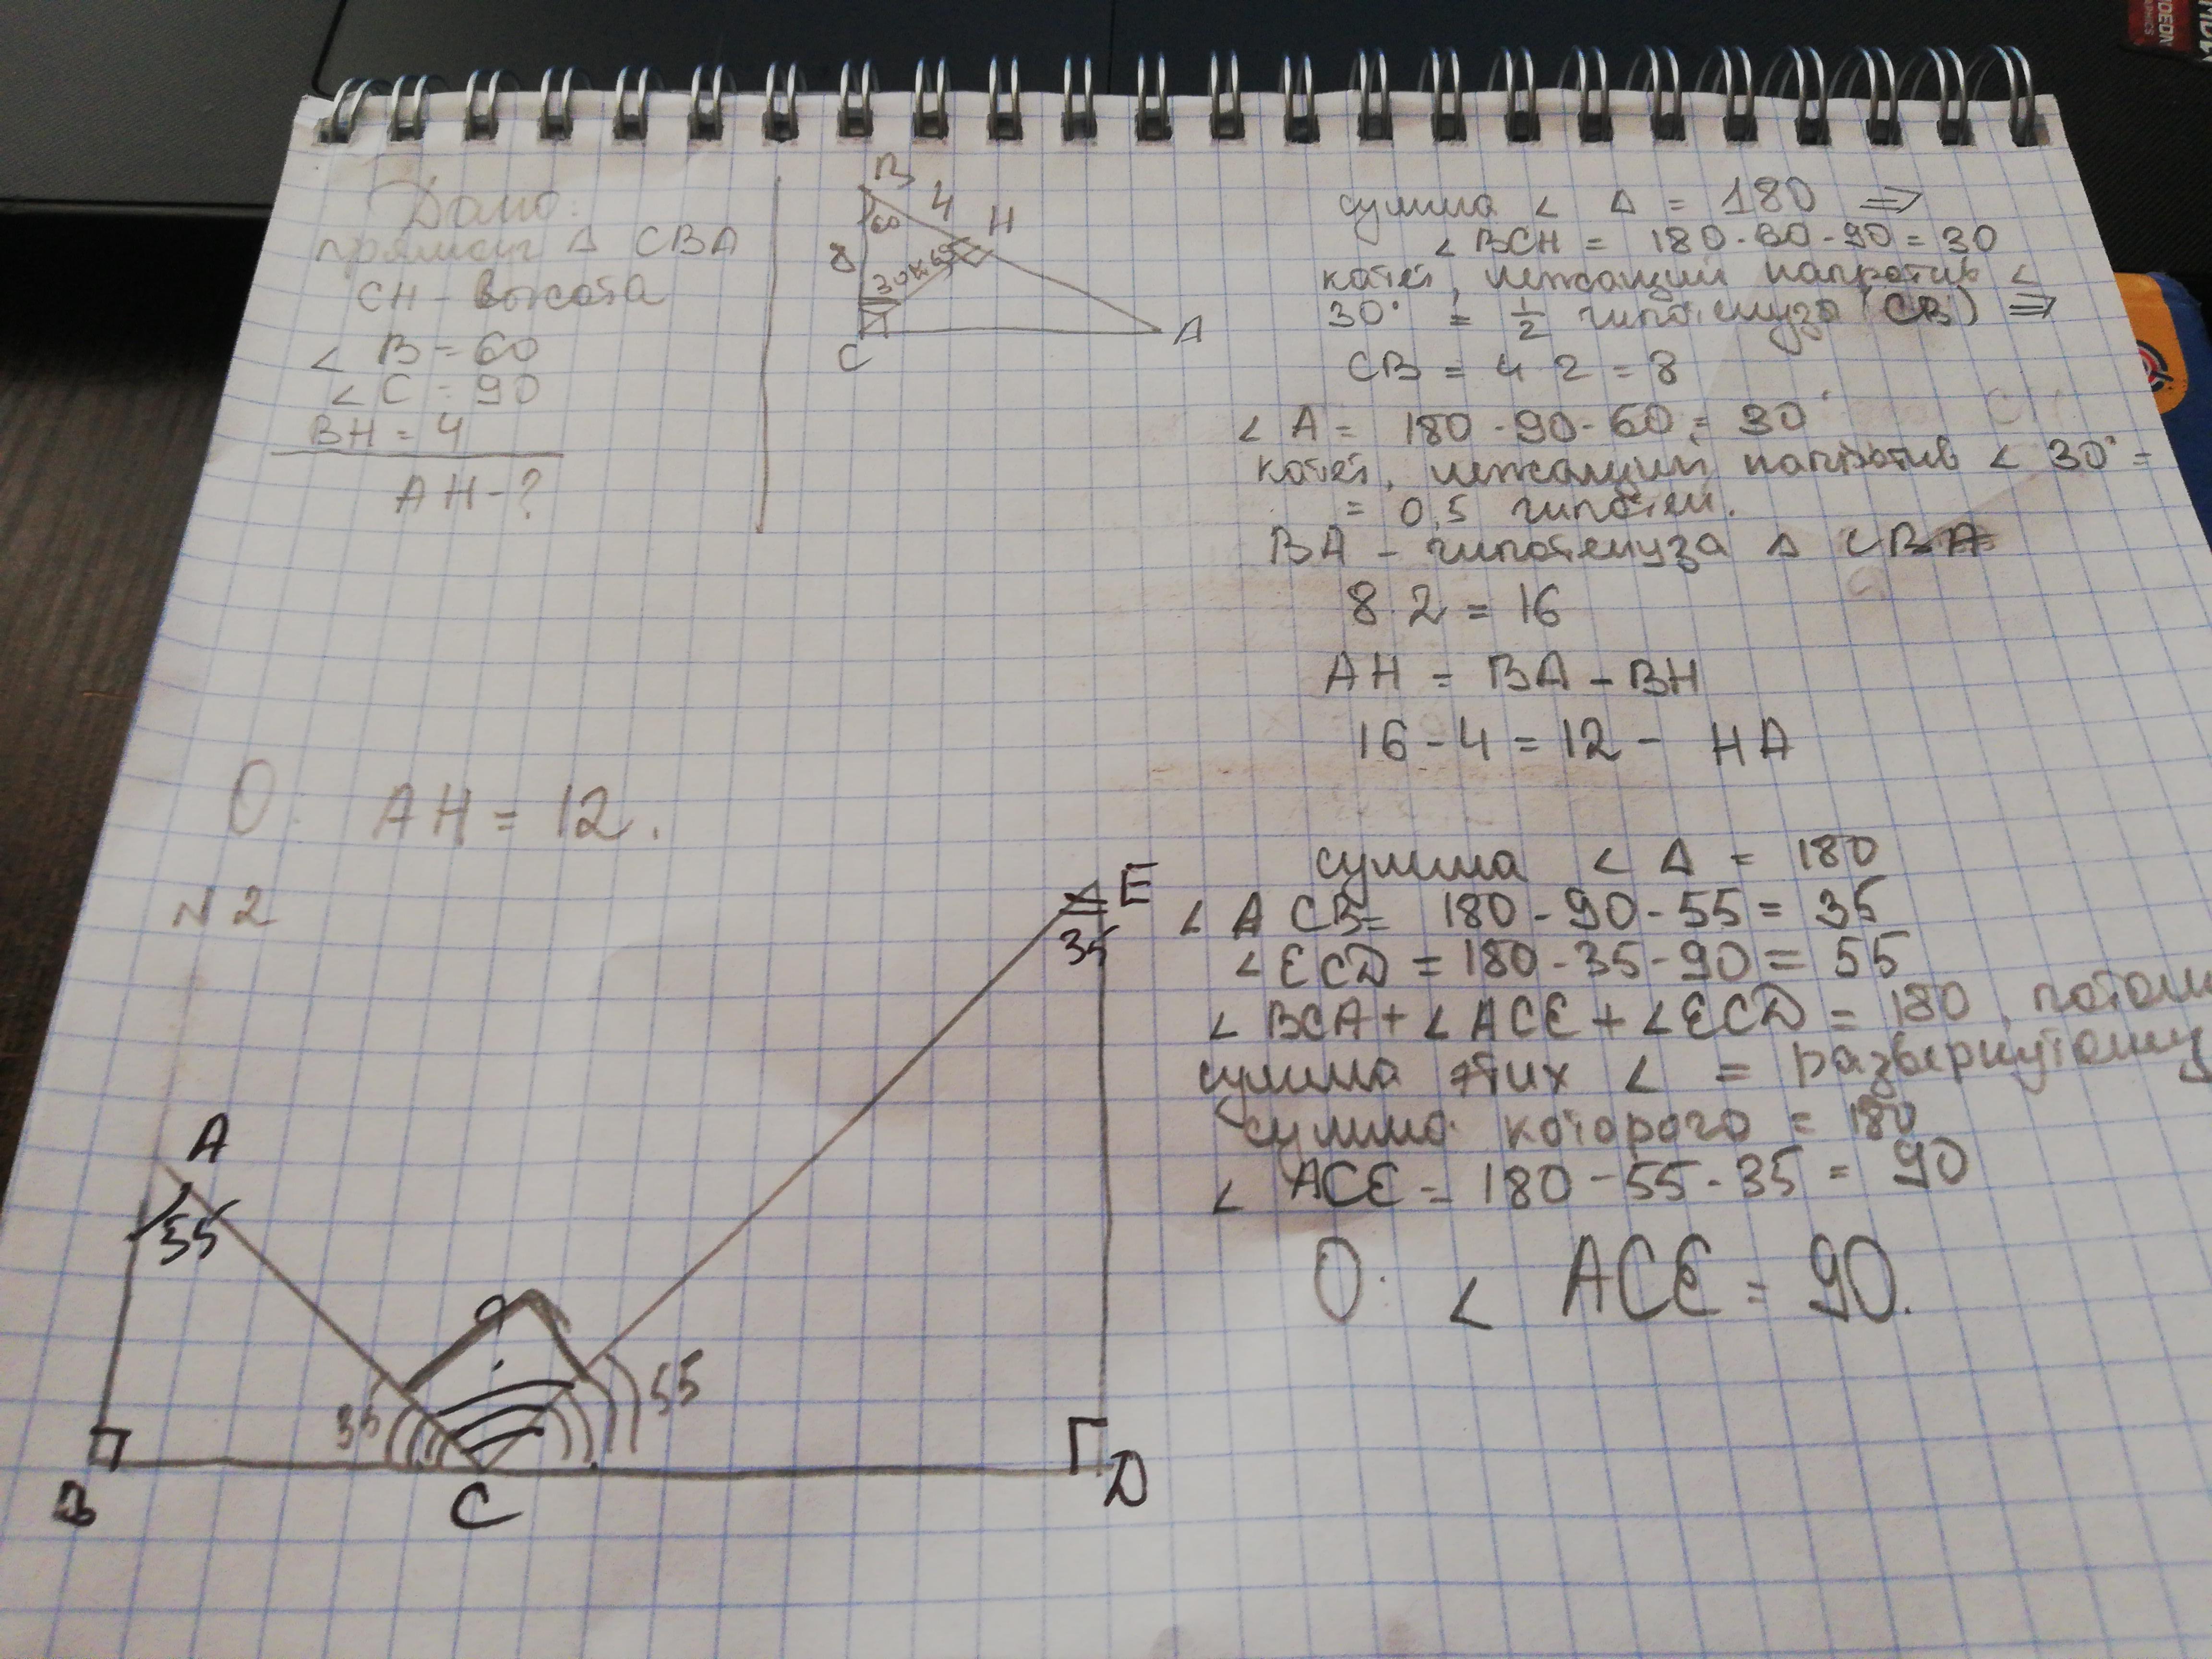 Дано:
прямоуг Δ CBA
CH - высота
∠ B = 60
∠ C = 90
BH = 4
AH - ?
B
4
H
60
8
30
C
A
сумма ∠ Δ = 180 ⇒
∠ BCH = 180 - 60 - 90 = 30
катет, лежащий напротив ∠
30° = 1/2 гипотенузы (CB) ⇒
CB = 4 · 2 = 8
∠ A = 180 - 90 - 60 = 30°
катет, лежащий напротив ∠ 30° =
= 0,5 гипотен.
BA - гипотенуза Δ CBA
8 · 2 = 16
AH = BA - BH
16 - 4 = 12 - HA
О: AH = 12.
N 2
E
35
A
55
?
35
55
B
C
D
сумма ∠ Δ = 180
∠ ACB = 180 - 90 - 55 = 35
∠ ECD = 180 - 35 - 90 = 55
∠ BCA + ∠ ACE + ∠ ECD = 180,
сумма этих ∠ = развернутому
сумма которого = 180
∠ ACE = 180 - 55 - 35 = 90
О: ∠ ACE = 90.